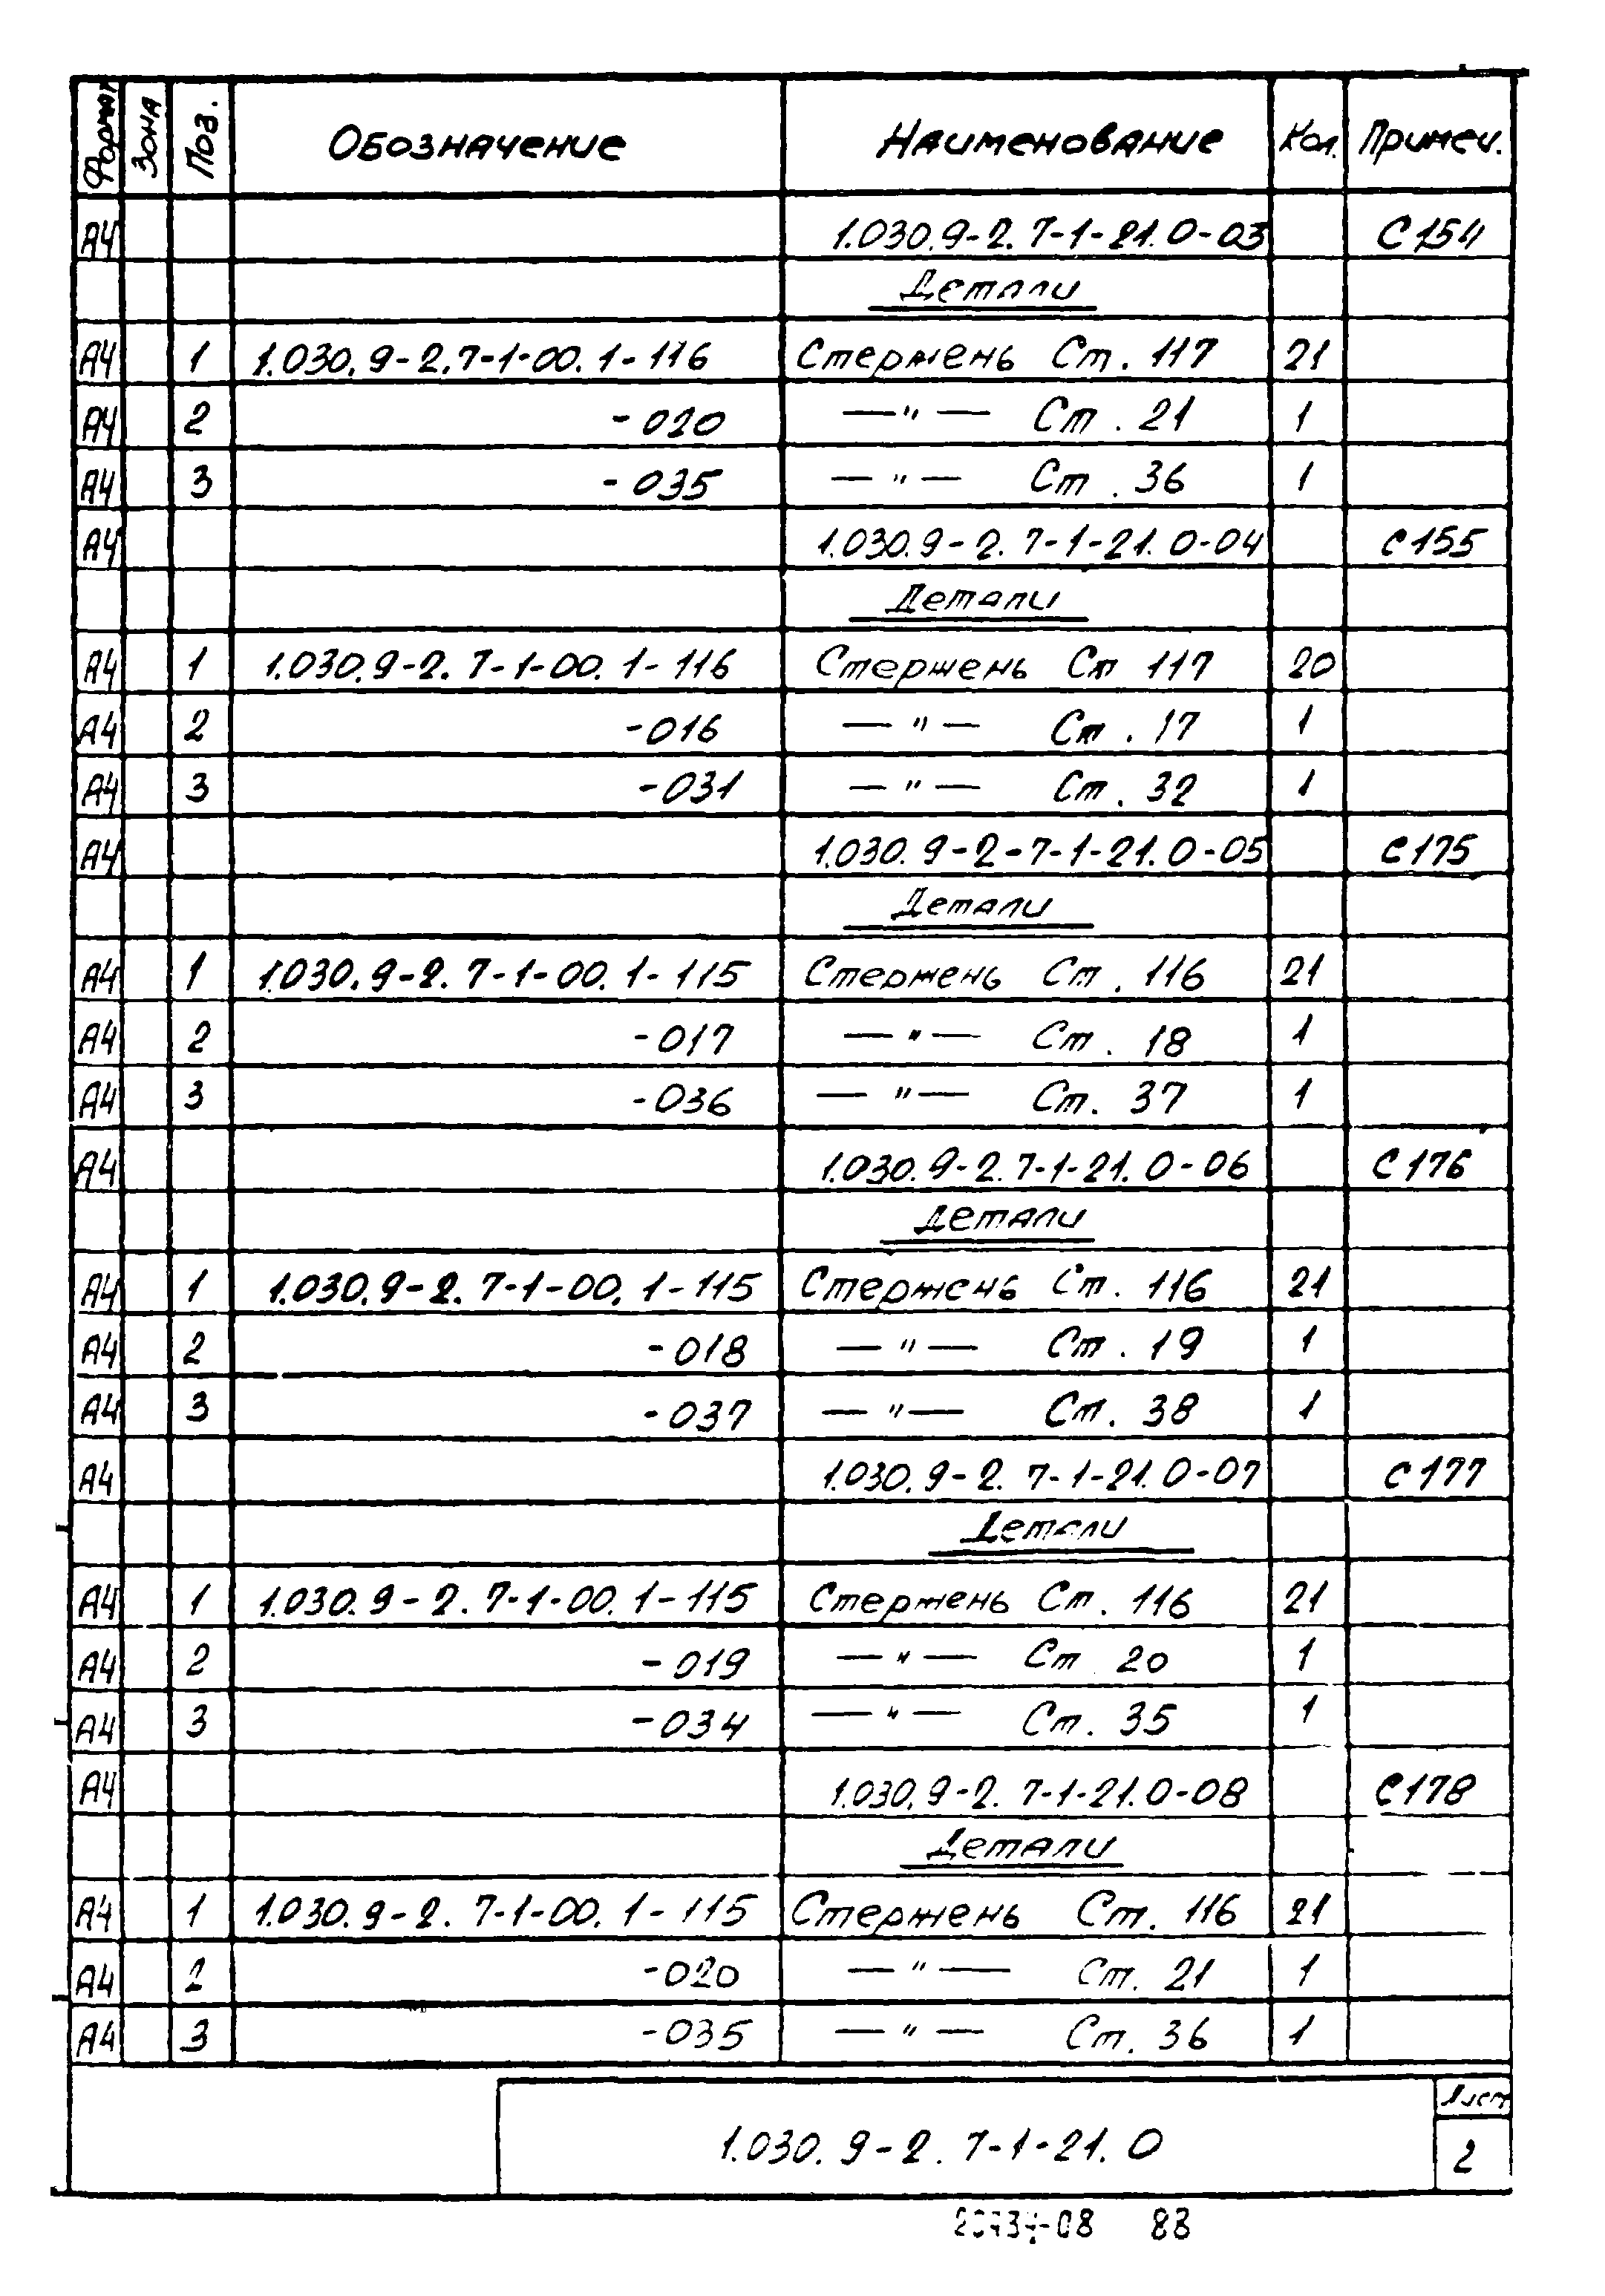 Формат Зона Поз. Обозначение Наименование Кол. Примеч.
А4 1.030.9-2.7-1-21.0-03 С154
Детали
А4 1 1.030.9-2.7-1-00.1-116 Стержень Ст. 117 21
А4 2 -020 —"— Ст. 21 1
А4 3 -035 —"— Ст. 36 1
А4 1.030.9-2.7-1-21.0-04 С155
Детали
А4 1 1.030.9-2.7-1-00.1-116 Стержень Ст 117 20
А4 2 -016 —"— Ст. 17 1
А4 3 -031 —"— Ст. 32 1
А4 1.030.9-2-7-1-21.0-05 С175
Детали
А4 1 1.030.9-2.7-1-00.1-115 Стержень Ст. 116 21
А4 2 -017 —"— Ст. 18 1
А4 3 -036 —"— Ст. 37 1
А4 1.030.9-2.7-1-21.0-06 С176
Детали
А4 1 1.030.9-2.7-1-00.1-115 Стержень Ст. 116 21
А4 2 -018 —"— Ст. 19 1
А4 3 -037 —"— Ст. 38 1
А4 1.030.9-2.7-1-21.0-07 С177
Детали
А4 1 1.030.9-2.7-1-00.1-115 Стержень Ст. 116 21
А4 2 -019 —"— Ст 20 1
А4 3 -034 —"— Ст. 35 1
А4 1.030.9-2.7-1-21.0-08 С178
Детали
А4 1 1.030.9-2.7-1-00.1-115 Стержень Ст. 116 21
А4 2 -020 —"— Ст. 21 1
А4 3 -035 —"— Ст. 36 1
1.030.9-2.7-1-21.0
Лист
2
88